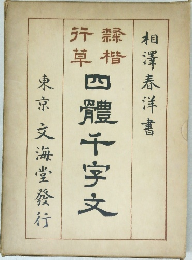 相澤春洋書
隸楷
行草
四體千字文
東京 文海堂發行